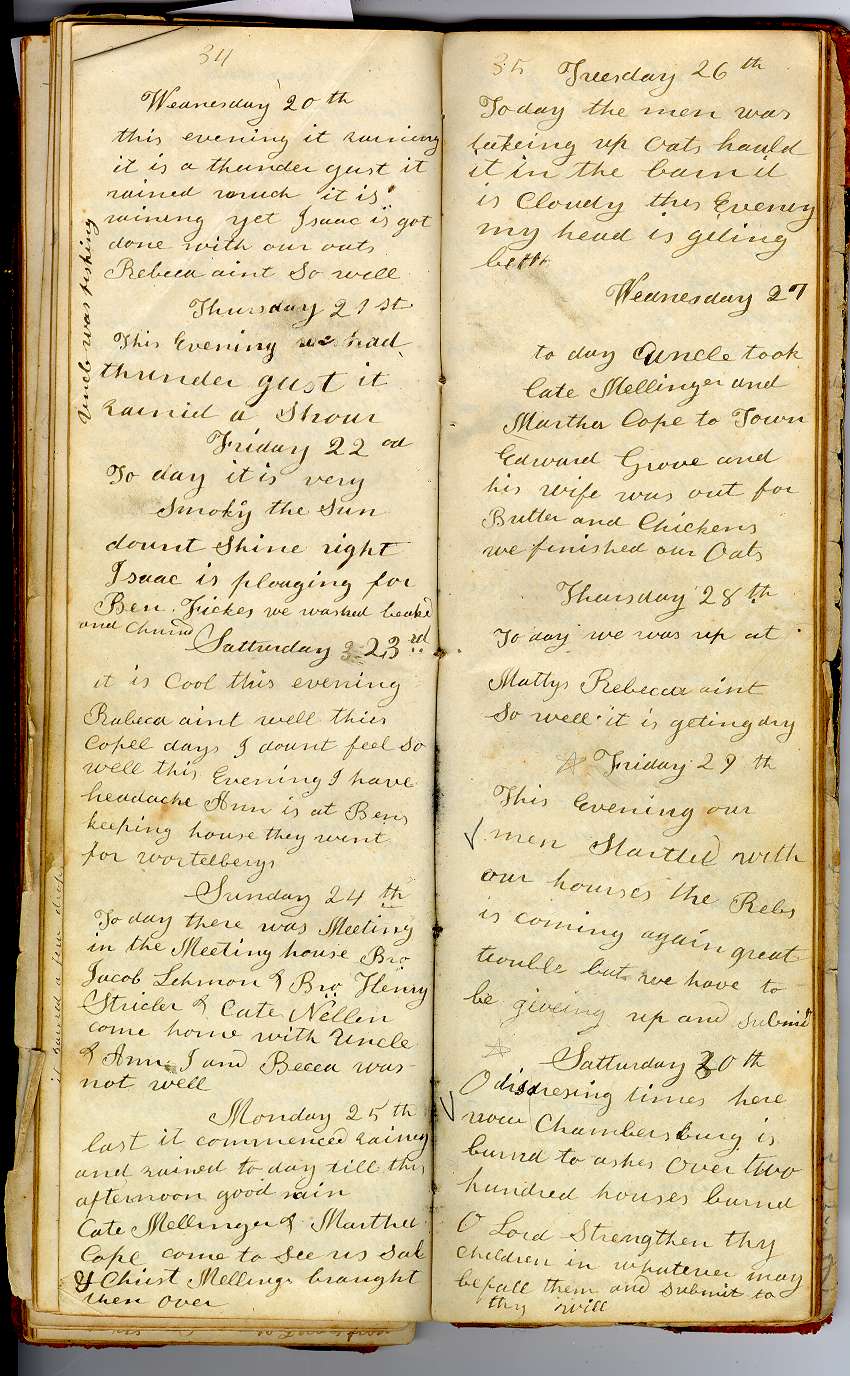 34
Wednesday 20 th
this evening it raining
it is a thunder gust it
rained much it is
raining yet Isaac is got
done with our oats
Rebeca aint So well
Uncle was fishing
Thursday 21 st
This Evening we had
thunder gust it
rainid a Shour
Friday 22 od
To day it is very
Smoky the Sun
dount Shine right
Isaac is plouging for
Ben. Fickes we washed baked
and Churnd
Satturday 23 rd
it is Cool this evening
Rabeca aint well thies
Copell days I dount feel So
well this Evening I have
headache Ann is at Bens
keeping house they went
for wortelberys
Sunday 24 th
To day there was Meeting
in the Meeting house Bro
Jacob Lehmon & Bro Henry
Stricler & Cate Nellen
come home with Uncle
& Ann I and Becca was
not well
it rained a few drops
Monday 25 th
last it commenced rainey
and rained to day till this
afternoon good rain
Cate Mellinger & Marthet
Cope come to See us Sale
& Christ Mellinge braught
then over
35 Tuesday 26 th
Today the men was
takeing up Oats hauld
it in the barn it
is Cloudy this Evening
my head is geting
better
Wednesday 27
to day Uncle took
Cate Mellinger and
Marther Cope to Town
Edward Grove and
his wife was out for
Butter and Chickens
we finished our Oats
Thursday 28 th
To day we was up at
Mattys Rebecca aint
So well it is geting dry
Friday 29 th
This Evening our
men Startled with
our hourses the Rebs
is coming again great
trouble but we have to
be giveing up and submit
Satturday 30 th
O disdresing times here
now Chambersburg is
burnd to ashes Over two
hundred houses burnd
O Lord Strengthen thy
Children in whatever may
befall them and submit to
thy will